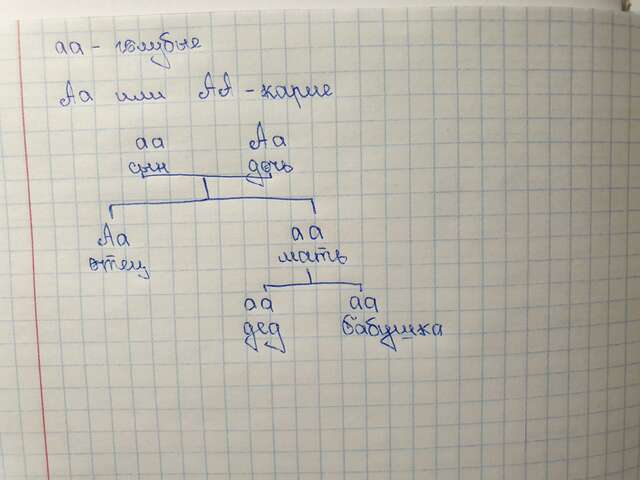 аа - голубые
Аа или АА - карие
аа Аа
сын дочь
Аа аа
отец мать
аа аа
дед бабушка